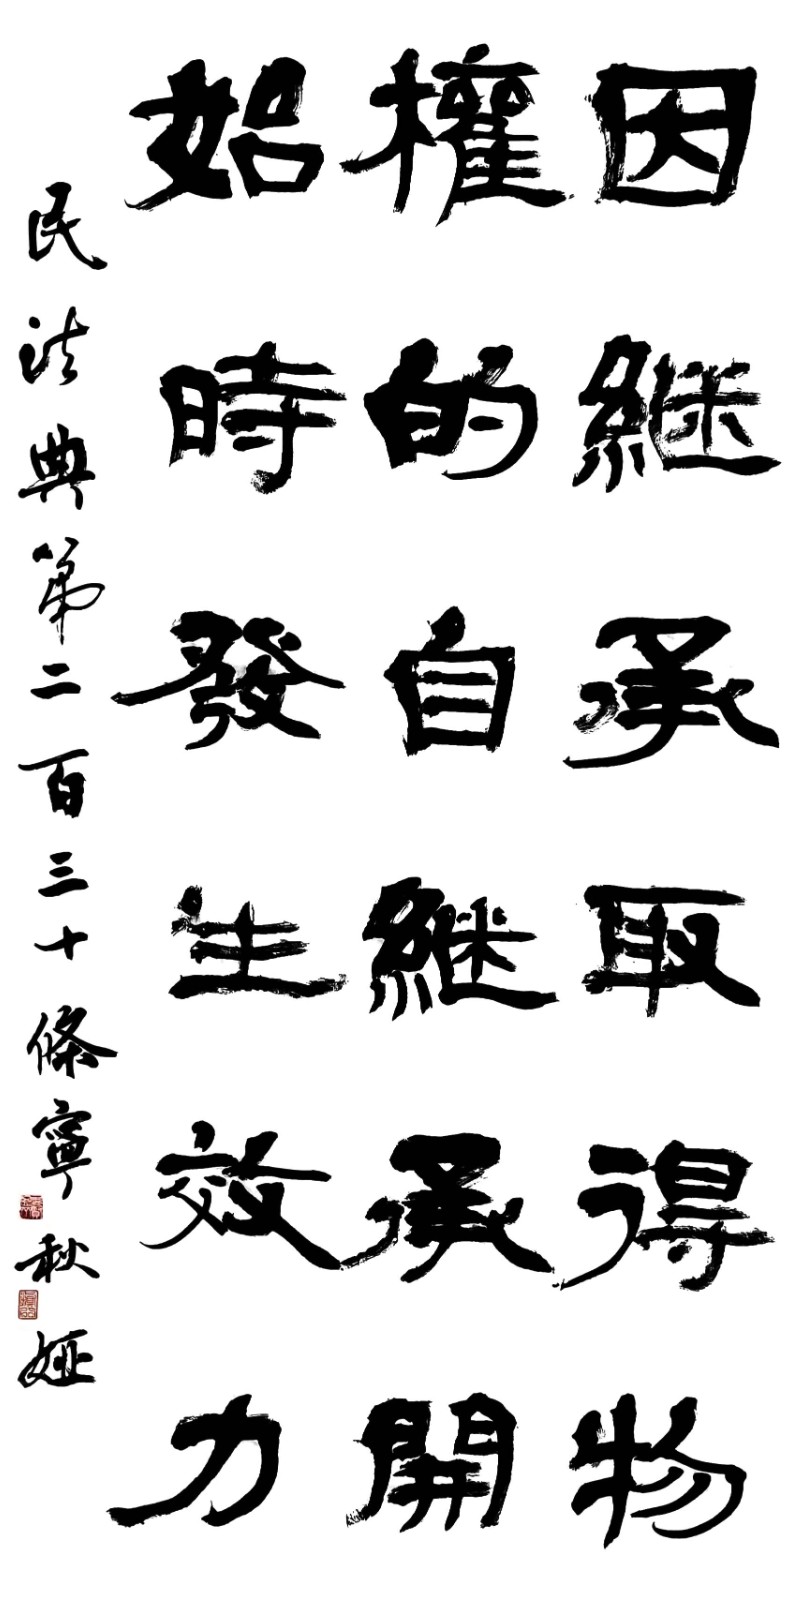 因繼承取得物
權的自繼承開
始時發生效力
民法典第二百三十條寧秋婭